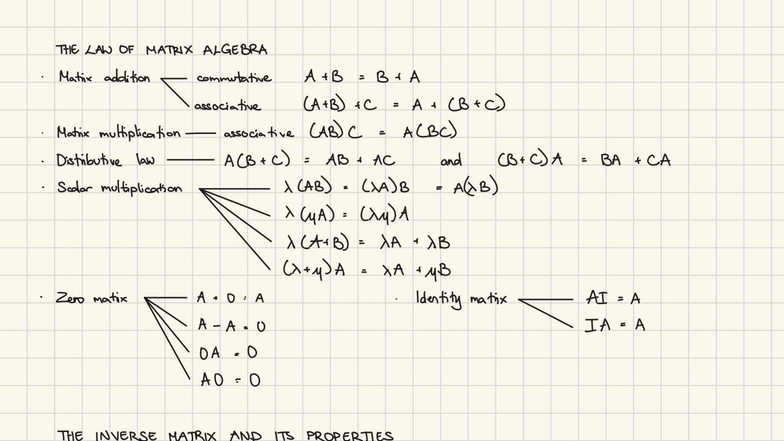 THE LAW OF MATRIX ALGEBRA
· Matix addition commutative A + B = B + A
associative (A+B) + C = A + (B + C)
· Matrix multiplication associative (AB) C = A(BC)
· Distributive law A(B + C) = AB + AC and (B + C) A = BA + CA
· Scalar multiplication λ (AB) = (λA) B = A(λB)
λ (μA) = (λμ) A
λ (A+B) = λA + λB
(λ+μ) A = λA + μB
· Zero matrix A + 0 = A · Identity matrix AI = A
A - A = 0 IA = A
0A = 0
A0 = 0
THE INVERSE MATRIX AND ITS PROPERTIES